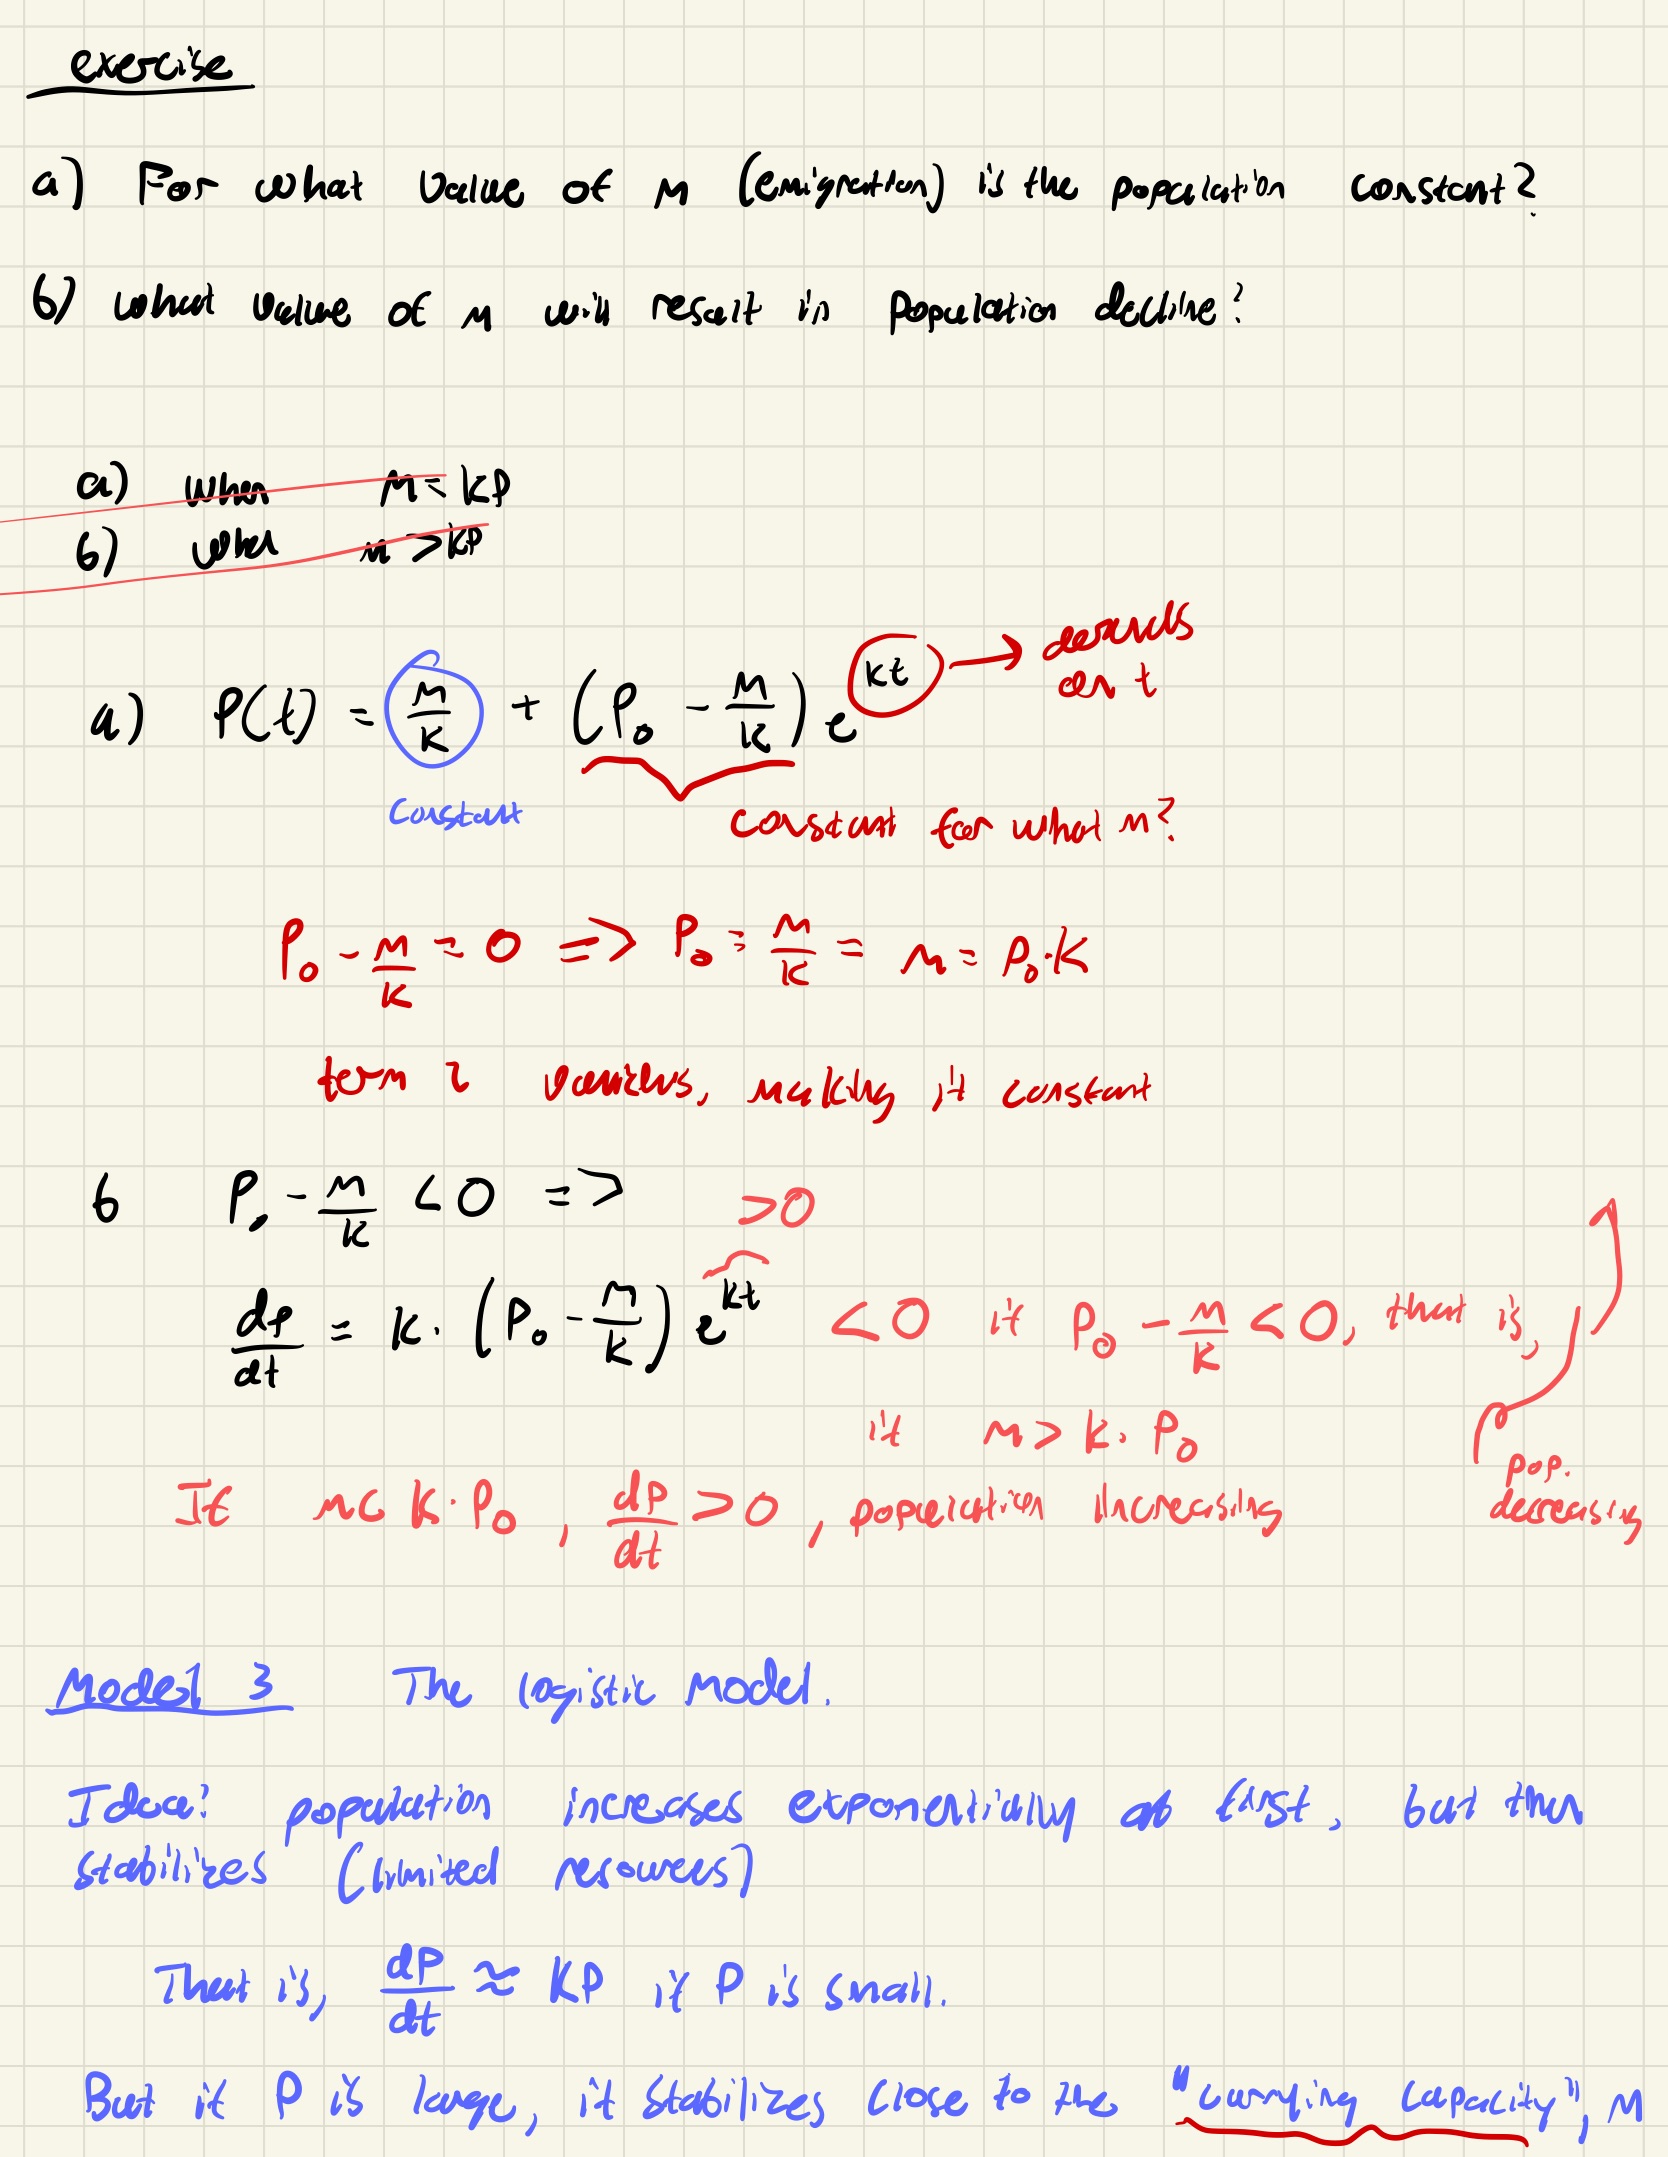 exercise
a) For what value of m (emigration) is the population constant?
b) what value of m will result in population decline?
a) when m = kp
b) when m > kp
a) P(t) = m/k + (P₀ - m/k) e^(kt) → depends on t
constant
constant for what m?
P₀ - m/k = 0 => P₀ = m/k = m = P₀·k
term 2 vanishes, making it constant
b P₀ - m/k < 0 =>
>0
dp/dt = k · (P₀ - m/k) e^(kt) < 0 if P₀ - m/k < 0, that is,
if m > k · P₀
pop. decreasing
If m < k · P₀, dp/dt > 0, population increasing
Model 3 The logistic model.
Idea: population increases exponentially at first, but then
stabilizes (limited resources)
That is, dP/dt ≈ kP if P is small.
But if P is large, it stabilizes close to the "carrying capacity", M